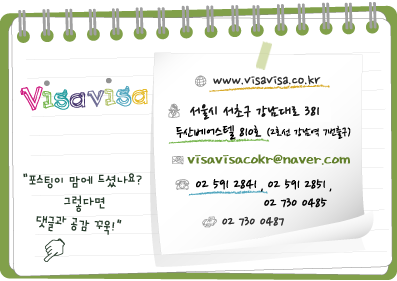 Visavisa
"포스팅이 맘에 드셨나요?
그렇다면
댓글과 공감 꾸욱!"
www.visavisa.co.kr
서울시 서초구 강남대로 381
두산베어스텔 810호 (2호선 강남역 7번출구)
visavisacokr@naver.com
02 591 2841, 02 591 2851,
02 730 0485
02 730 0487